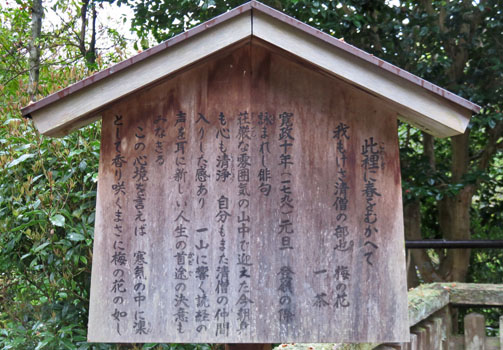 此裡に春をむかへて
我もけさ清僧の部也 梅の花
一茶
寛政十年(一七九八)元旦 登嶺の際
詠まれし俳句
荘厳な雰囲気の山中で迎えた今朝身
も心も清浄 自分もまた清僧の仲間
入りした感あり 一山に響く読経の
声を耳に新しい人生の首途の決意も
みなぎる
この心境を言えば 寒気の中に凛
として香り咲くまさに梅の花の如し